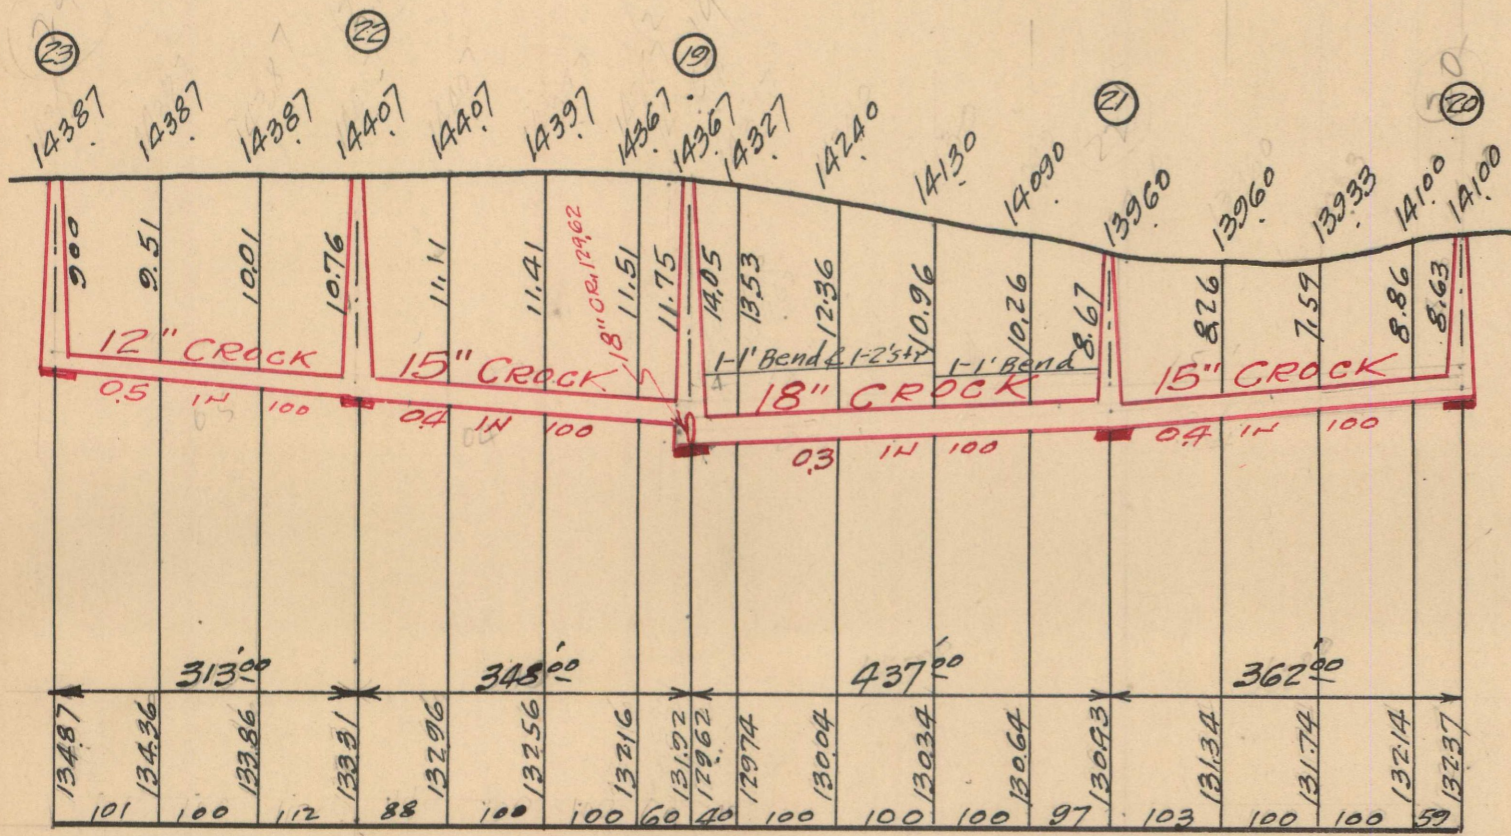 23 22 19 21 20
143.87 143.87 143.87 144.07 144.07 143.97 143.67 143.67 143.27 142.40 141.30 140.90 139.60 139.60 139.33 141.00 141.00
9.00 9.51 10.01 10.76 11.11 11.41 18" CR. 129.62 11.51 11.75 14.05 13.53 12.36 10.96 10.26 8.67 8.26 7.59 8.86 8.63
12" CROCK 15" CROCK 1-1' Bend & 1-2' str 1-1' Bend 18" CROCK 15" CROCK
0.5 IN 100 0.4 IN 100 0.3 IN 100 0.4 IN 100
313'00 348'00 437'00 362'00
134.87 134.36 133.86 133.31 132.96 132.56 132.16 131.92 129.62 129.74 130.04 130.34 130.64 130.93 131.34 131.74 132.14 132.37
101 100 112 88 100 100 60 40 100 100 100 97 103 100 100 59